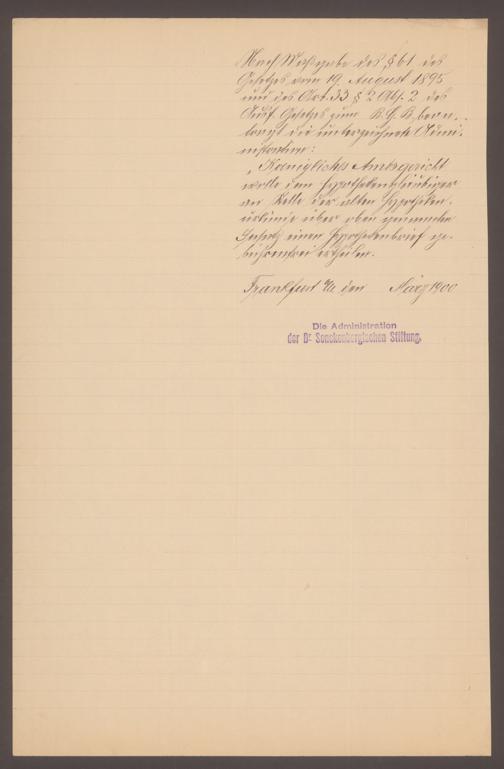 Nach Maßgabe des § 61 des
Gesetzes vom 19. August 1895
und des Art. 33 § 2 Abs. 2 des
Ausf. Gesetzes zum B. G. B. bean-
tragt die unterzeichnete Admi-
nistration:
„Königliches Amtsgericht
wolle dem Hypothekengläubiger
an Stelle der alten Hypotheken-
urkunde über oben genannten
Insatz einen Hypothekenbrief ge-
bührenfrei ertheilen.
Frankfurt a/M den März 1900
Die Administration
der Dr. Senckenbergischen Stiftung.